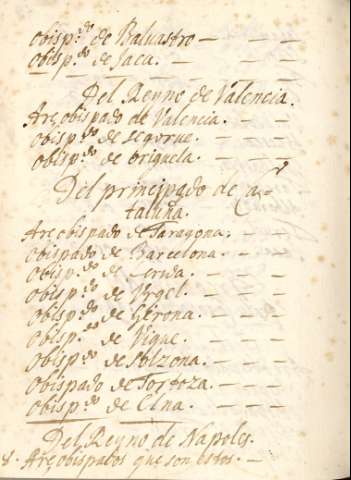 obisp.do de Balvastro — — —
obisp.do de Jaca. — — —
Del Reyno de Valencia.
Arçobispado de Valencia. — —
obisp.do de segorue. — — —
obisp.do de origuela. — — —
Del principado de Ca-
taluña.
Arçobispado de Taragona. — —
obispado de Barcelona. — —
obisp.do de Lerida. — — —
obisp.do de Vrgel. — — —
obisp.do de Gerona. — — —
obisp.do de Vique. — — —
obisp.do de Solzona. — — —
obispado de Tortoza. — — —
obisp.do de Elna. — — —
Del Reyno de Napoles.
8. Arçobispados que son estos. —